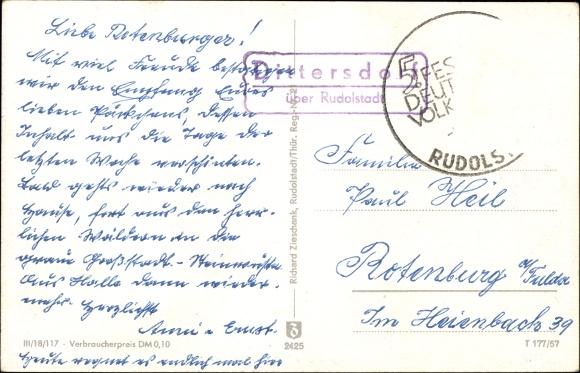 Liebe Rotenburger!
Mit viel Freude bestätigen
wir den Empfang Eures
lieben Päckchens, dessen
Inhalt uns die Tage der
letzten Woche verschönten.
Bald gehts wieder nach
Hause, fort aus den herr-
lichen Wäldern in die
graue Großstadt. - Steinwüste.
Aus Halle dann wieder
mehr. Herzlichst
Anni u. Ernst.
Heute regnet es endlich mal hier
Dittersdorf
über Rudolstadt
5. FES
DEUT
VOLK
RUDOLS
Familie
Paul Heil
Rotenburg a/Fulda
Im Heienbach 39
Richard Zieschenk, Rudolstadt/Thür. Reg.-Nr.
III/18/117 · Verbraucherpreis DM 0,10
2425
T 177/57